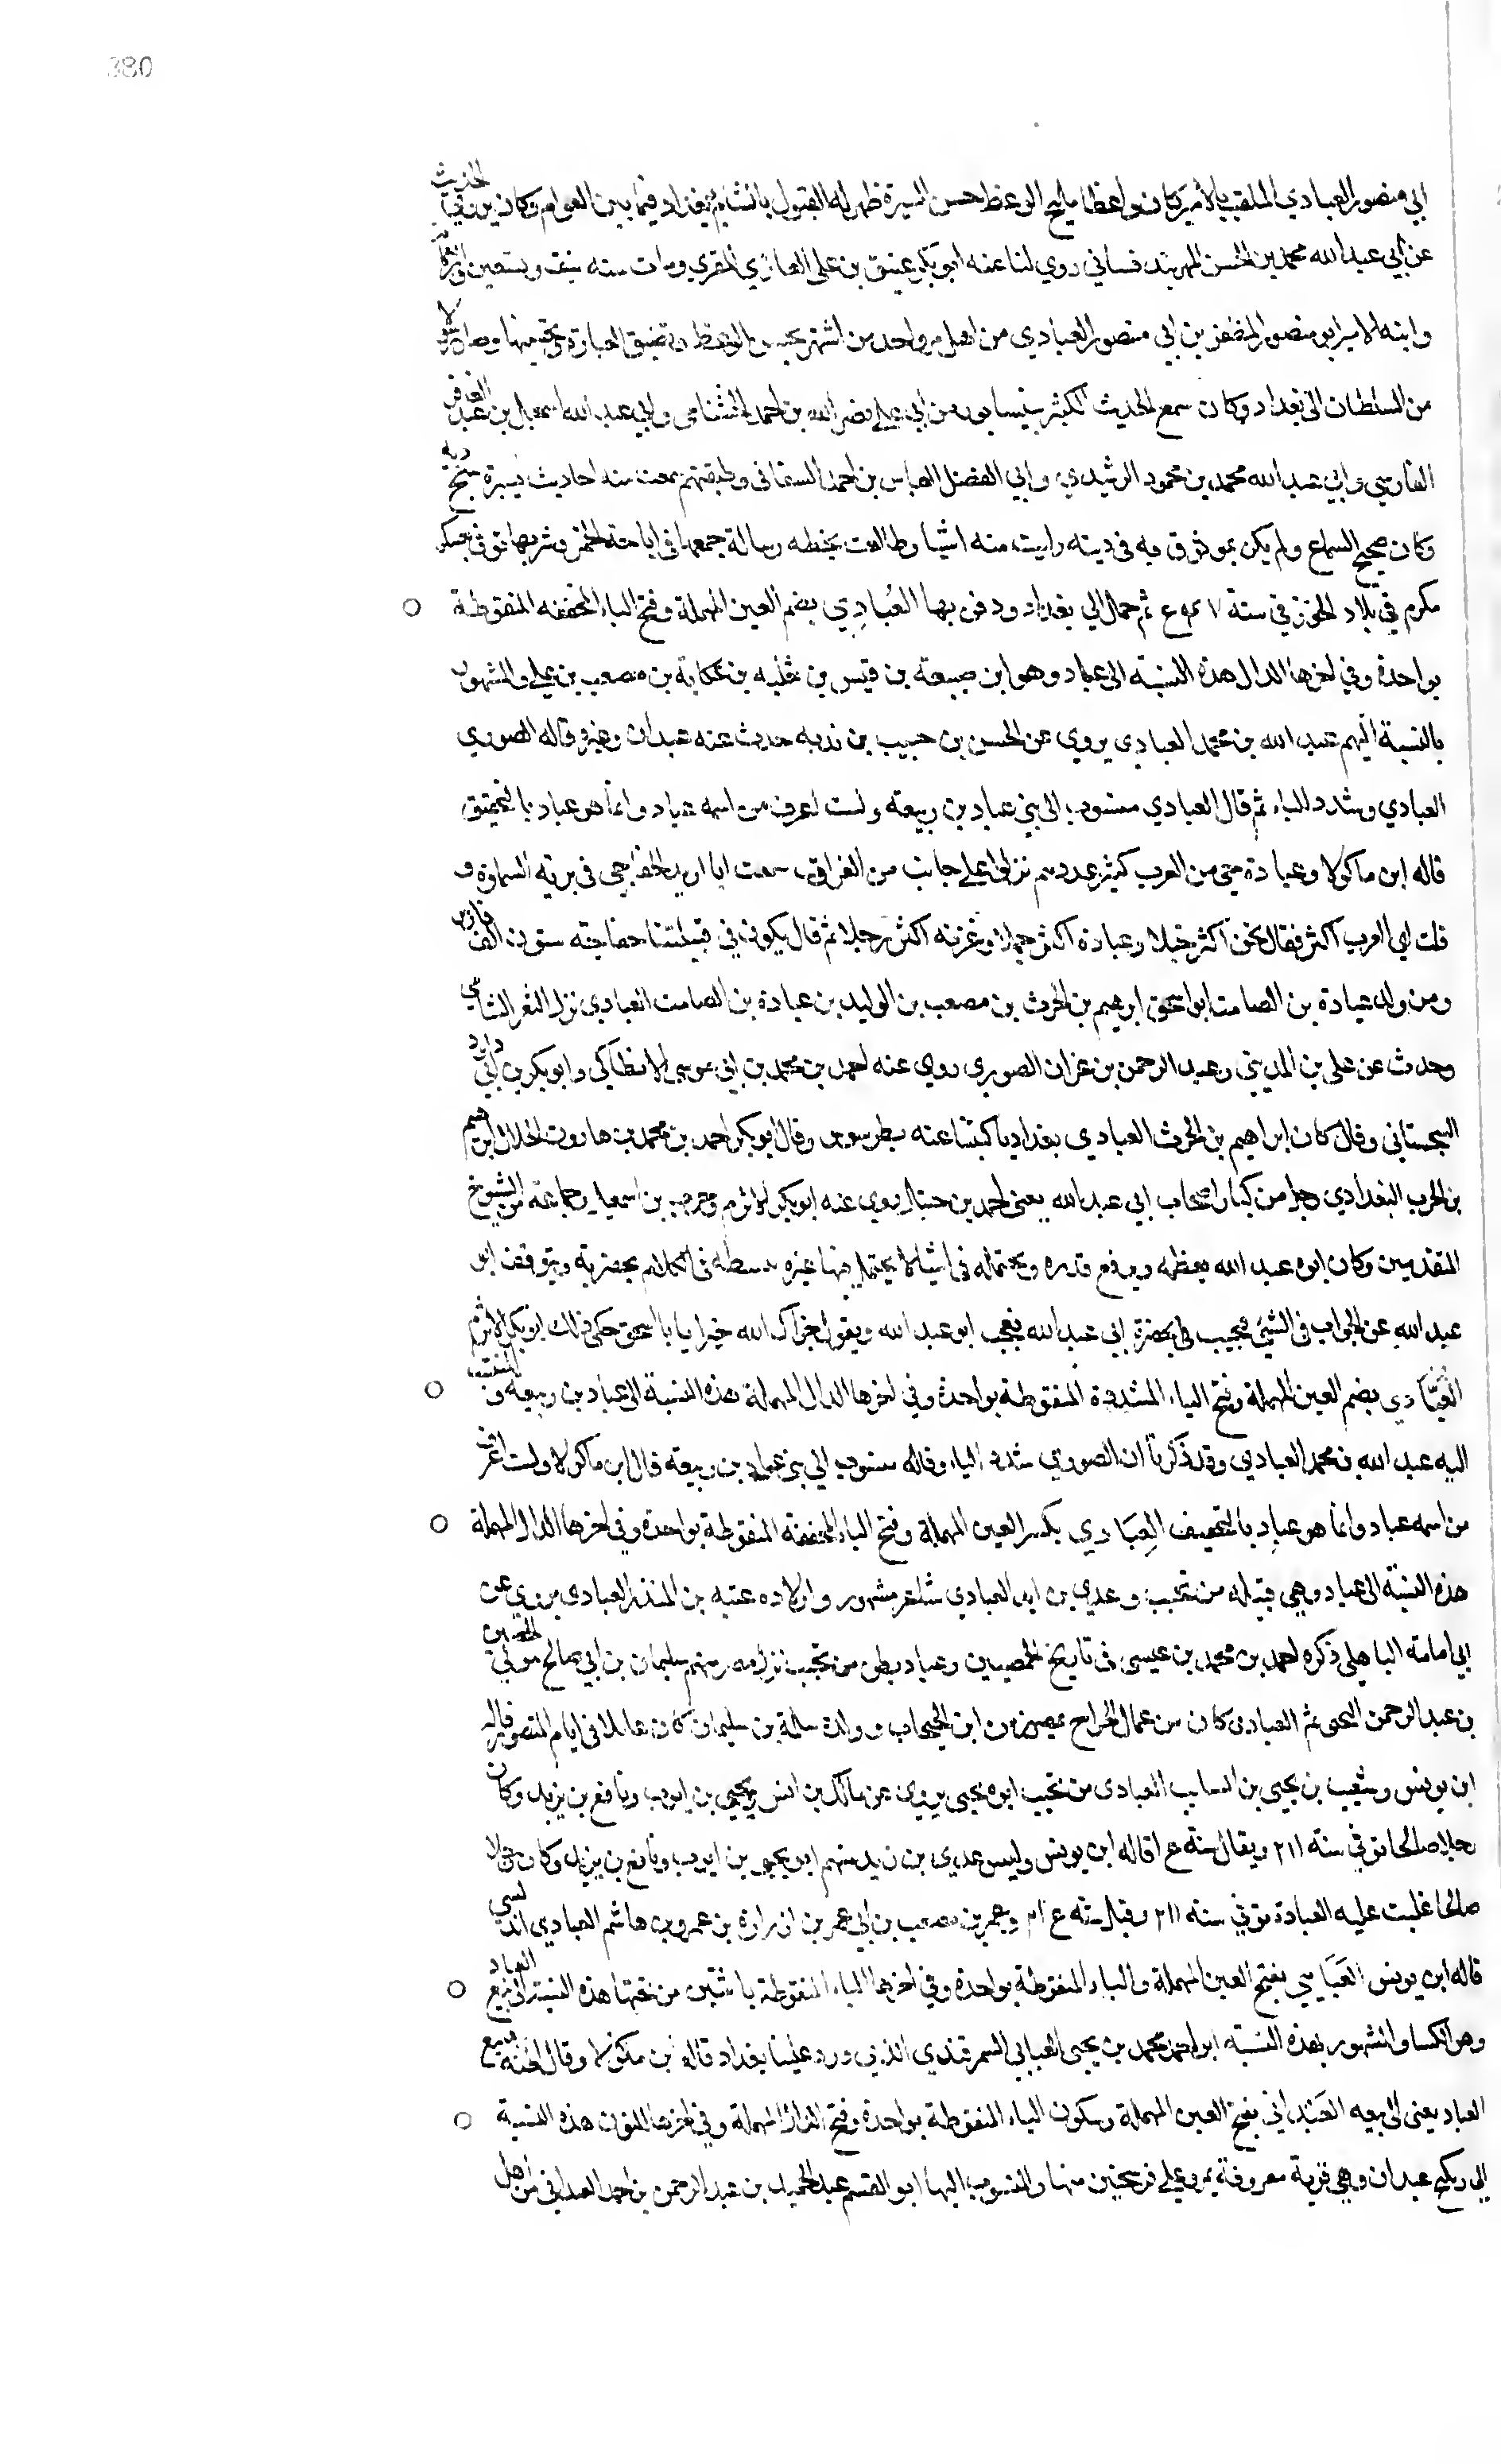 380
ابي منصور العبادي الملقب بالأمير كان واعظا مليح الوعظ حسن السيرة ظهر له القبول بالشام وبغداد فيما بين العوام وكان يروي الحديث
عن ابي عبد الله محمد بن الحسن المهربندقشاني روي لنا عنه ابو بكر عتيق بن علي الغازي المقري ومات سنه نيف وتسعين واربعمائة
وابنه الامير ابو منصور المظفر بن ابي منصور العبادي من اهل مرو احد من اشتهر بحسن الوعظ وتضيق العبارة وصار رسولا
من السلطان الى بغداد وكان سمع الحديث الكثير بنيسابور من ابي علي نصر الله بن احمد الخشنامي وابي عبد الله اسمعيل بن عبد الغافر
الفارسي وابي عبد الله محمد بن محمود الرشيدي وابي الفضل العباس بن احمد الشقاني وطبقتهم سمعت منه احاديث يسيرة
وكان صحيح السماع ولم يكن بموثوق به في دينه رايت منه اشيا وطالعت بخطه رسالة جمعها في اباحة الخمر وشربها توفي بعسكر
مكرم في بلاد الخوز في سنة ثم حمل الي بغداد ودفن بها العُبادِي بضم العين المهملة وفتح الباء المخففه المنقوطة
بواحدة وفي اخرها الدال هذه النسبة الى عباد وهو ابن ضبيعة بن قيس بن ثعلبه بن عكابة بن صعب بن علي والمشهور
بالنسبة اليهم عبد الله بن محمد العبادي يروي عن الحسن بن حبيب بن ندبه حدث عنه عبدان وغيره قاله الصوري
العبادي وشدد الباء ثم قال العبادي منسوب الى بني عباد بن ربيعة ولست اعرف من اسمه عباد وانما هو عباد بالتخفيف
قاله ابن ماكولا وعبادة حي من العرب كثير عددهم نزلوا علي جانب من الفرات سمعت ابا اريد الخفاجي في برية السماوة و
قلت اي العرب اكثر فقال نحن اكثر خيلا وعبادة اكثر جمالا وغزيه اكثر رجلا ثم قال يكون في قبيلتنا خفاجة ستون الف فارس
ومن ولد عبادة بن الصامت ابو اسحق ابرهيم بن الحرث بن مصعب بن الوليد بن عبادة بن الصامت العبادي نزل الثغر الشامي
وحدث عن علي بن المديني وعبد الرحمن بن عزان الصوري روي عنه احمد بن محمد بن ابي موسى الانطاكي وابو بكر بن ابي داود
السجستاني وقال كان ابراهيم بن الحرث العبادي بغداديا كتبنا عنه بطرسوس وقال ابو بكر احمد بن محمد بن هارون الخلال ابرهيم
بن الحرث البغدادي رجل من كبار اصحاب ابي عبد الله يعني احمد بن حنبل روي عنه ابو بكر الاثرم وحرب بن اسمعيل وجماعة من الشيوخ
المتقدمين وكان ابو عبد الله يعظمه ويرفع قدره ويحتمله في اشيا لا يحتمل فيها غيره يبسطه في الكلام بحضرته ويتوقف ابو
عبد الله عن الجواب في الشيء فيجيب في بحضرة ابي عبد الله فيعجب ابو عبد الله ويقول جزاك الله خيرا يا با اسحق حكى ذلك ابو بكر الاثرم
العُبّادي بضم العين المهملة وفتح الباء المشددة المنقوطة بواحدة وفي اخرها الدال المهملة هذه النسبة الى عباد بن ربيعة والمنتسب
اليه عبد الله بن محمد العبادي وقد ذكرنا ان الصوري شدد الباء وقاله منسوب الي بني عباد بن ربيعة قال ابن ماكولا ولست اعرف
من اسمه عباد وانما هو عباد بالتخفيف العِبَادي بكسر العين المهملة وفتح الباء المخففة المنقوطة بواحدة وفي اخرها الدال المهملة
هذه النسبة الى عباد وهي قبيلة من تجيب وعدي بن العبادي شاعر مشهور واولاده عتبه بن المنذر العبادي يروي عن
ابي امامة الباهلي ذكره احمد بن محمد بن عيسى في تاريخ الحمصيين وعباد بطن من تجيب نزل مصر منهم سليمان بن ابي صالح مولى الحصين
بن عبد الرحمن التجيبي ثم العبادي كان من عمال الخراج بمصر زمن ابن الحبحاب وولده سلمة بن سليمان كان عاملا في ايام المنصور قاله
ابن يونس وشعيب بن يحيى بن السايب العبادي من تجيب ابو يحيى يروي عن مالك بن انس ويحيى بن ايوب ونافع بن يزيد وكان
رجلا صالحا توفي سنة ٢١١ ويقال سنه قاله ابن يونس وليس عدي بن زيد منهم ابو يحيى بن ايوب ونافع بن يزيد وكان رجلا
صالحا غلبت عليه العبادة توفي سنة ٢١١ وقيل سنه وعمر بن مصعب بن ابي عمر بن زرارة بن عمرو بن هاشم العبادي اندلسي
قاله ابن يونس العَبَايي بفتح العين المهملة والباء المنقوطة بواحدة وفي اخرها الياء المنقوطة باثنتين من تحتها هذه النسبة الى بيع العباء
وهو الكساء والمشهور بهذه النسبة ابو احمد محمد بن يحيى العبايي السمرقندي الذي ورد علينا بغداد قاله ابن ماكولا وقال
العباء يعني الى بيعه العَبْداني بفتح العين المهملة وسكون الباء المنقوطة بواحدة وفتح الدال المهملة وفي اخرها النون هذه النسبة
الى عبدان وهي قرية معروفة بمرو علي فرسخين منها والمنسوب اليها ابو القسم عبد الحميد بن عبد الرحمن بن احمد العبداني من اهل